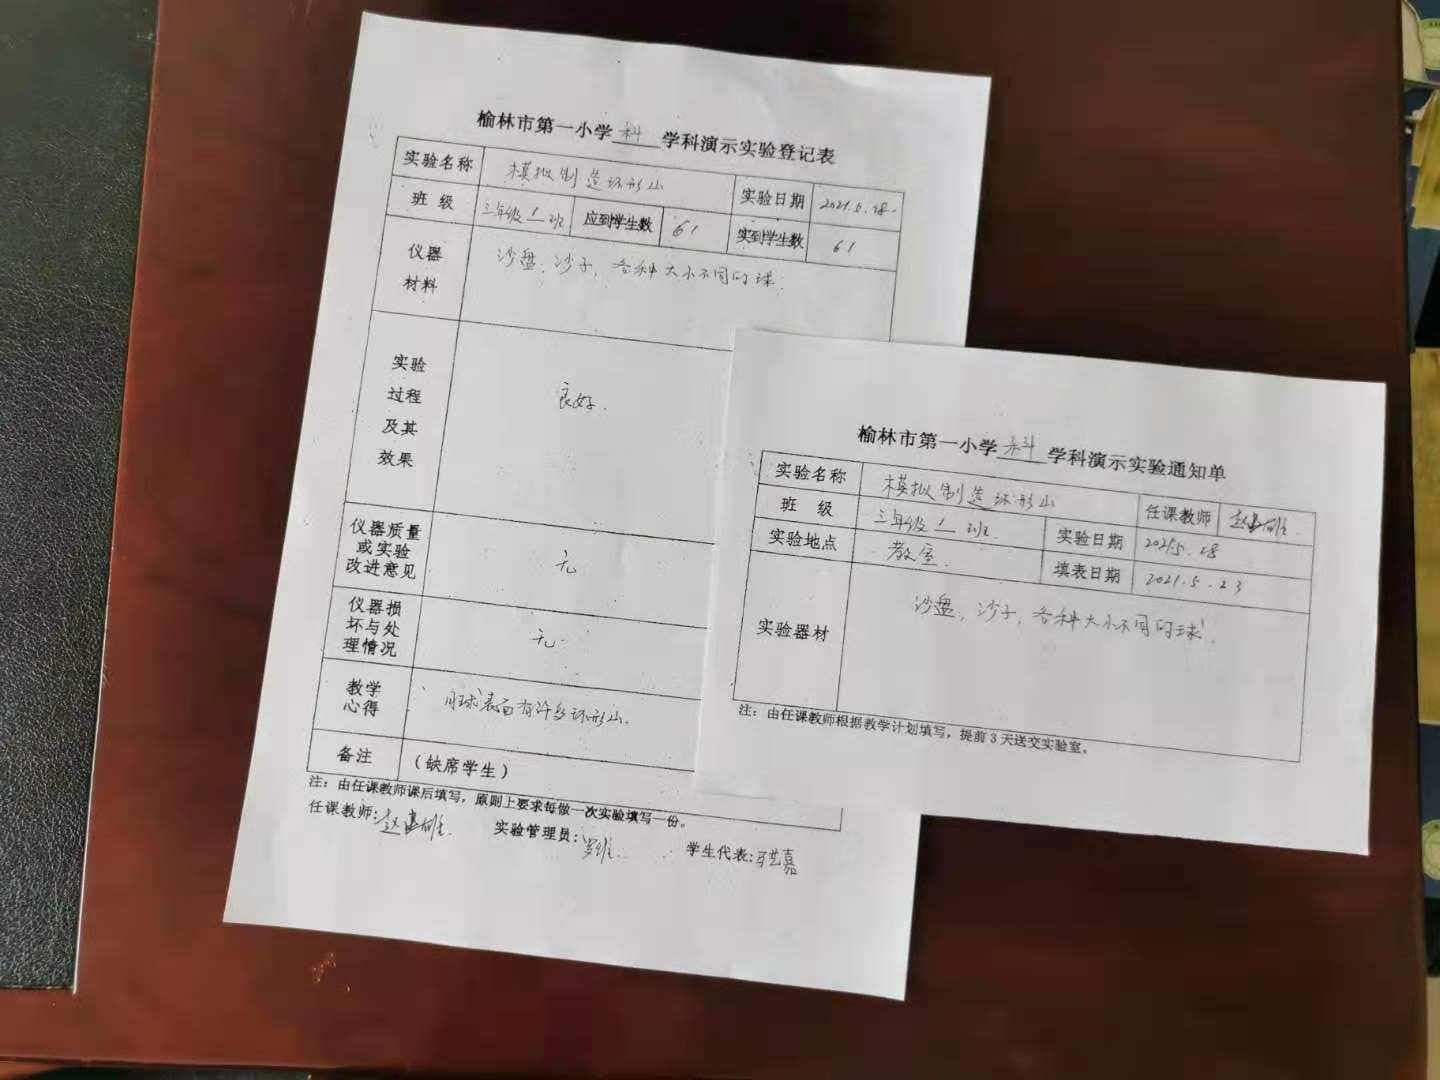 榆林市第一小学 科 学科演示实验登记表
实验名称 模拟制造环形山 实验日期 2021.5.28.
班 级 三年级 1 班 应到学生数 61 实到学生数 61
仪器
材料
沙盘,沙子,各种大小不同的球.
实验
过程
及其
效果
良好.
仪器质量
或实验
改进意见
无
仪器损
坏与处
理情况
无.
教学
心得
月球表面有许多环形山.
备注 (缺席学生)
注:由任课教师课后填写,原则上要求每做一次实验填写一份。
任课教师: 实验管理员: 学生代表:
榆林市第一小学 科 学科演示实验通知单
实验名称 模拟制造环形山 任课教师
班 级 三年级 1 班 实验日期 2021.5.28
实验地点 教室. 填表日期 2021.5.23
实验器材 沙盘,沙子,各种大小不同的球.
注:由任课教师根据教学计划填写,提前3天送交实验室。